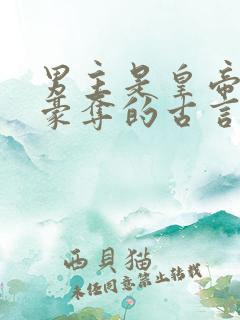 男主是皇帝
豪夺的古言
西贝猫
未经同意禁止转载